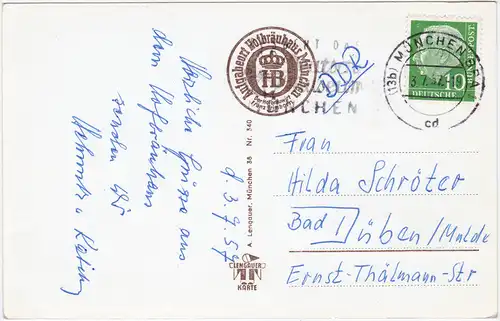 Herzliche Grüsse aus
dem Hofbräuhaus
senden Dir
d. 3.7.57
Aufgabeort Hofbräuhaus München
HB
MÜNCHEN
DDR
(13b) MÜNCHEN
3.7.57
cd
10
DEUTSCHE
POST
A. Lengauer, München 38 Nr. 340
LENGAUER
KARTE
Frau
Hilda Schröter
Bad Düben/Mulde
Ernst-Thälmann-Str